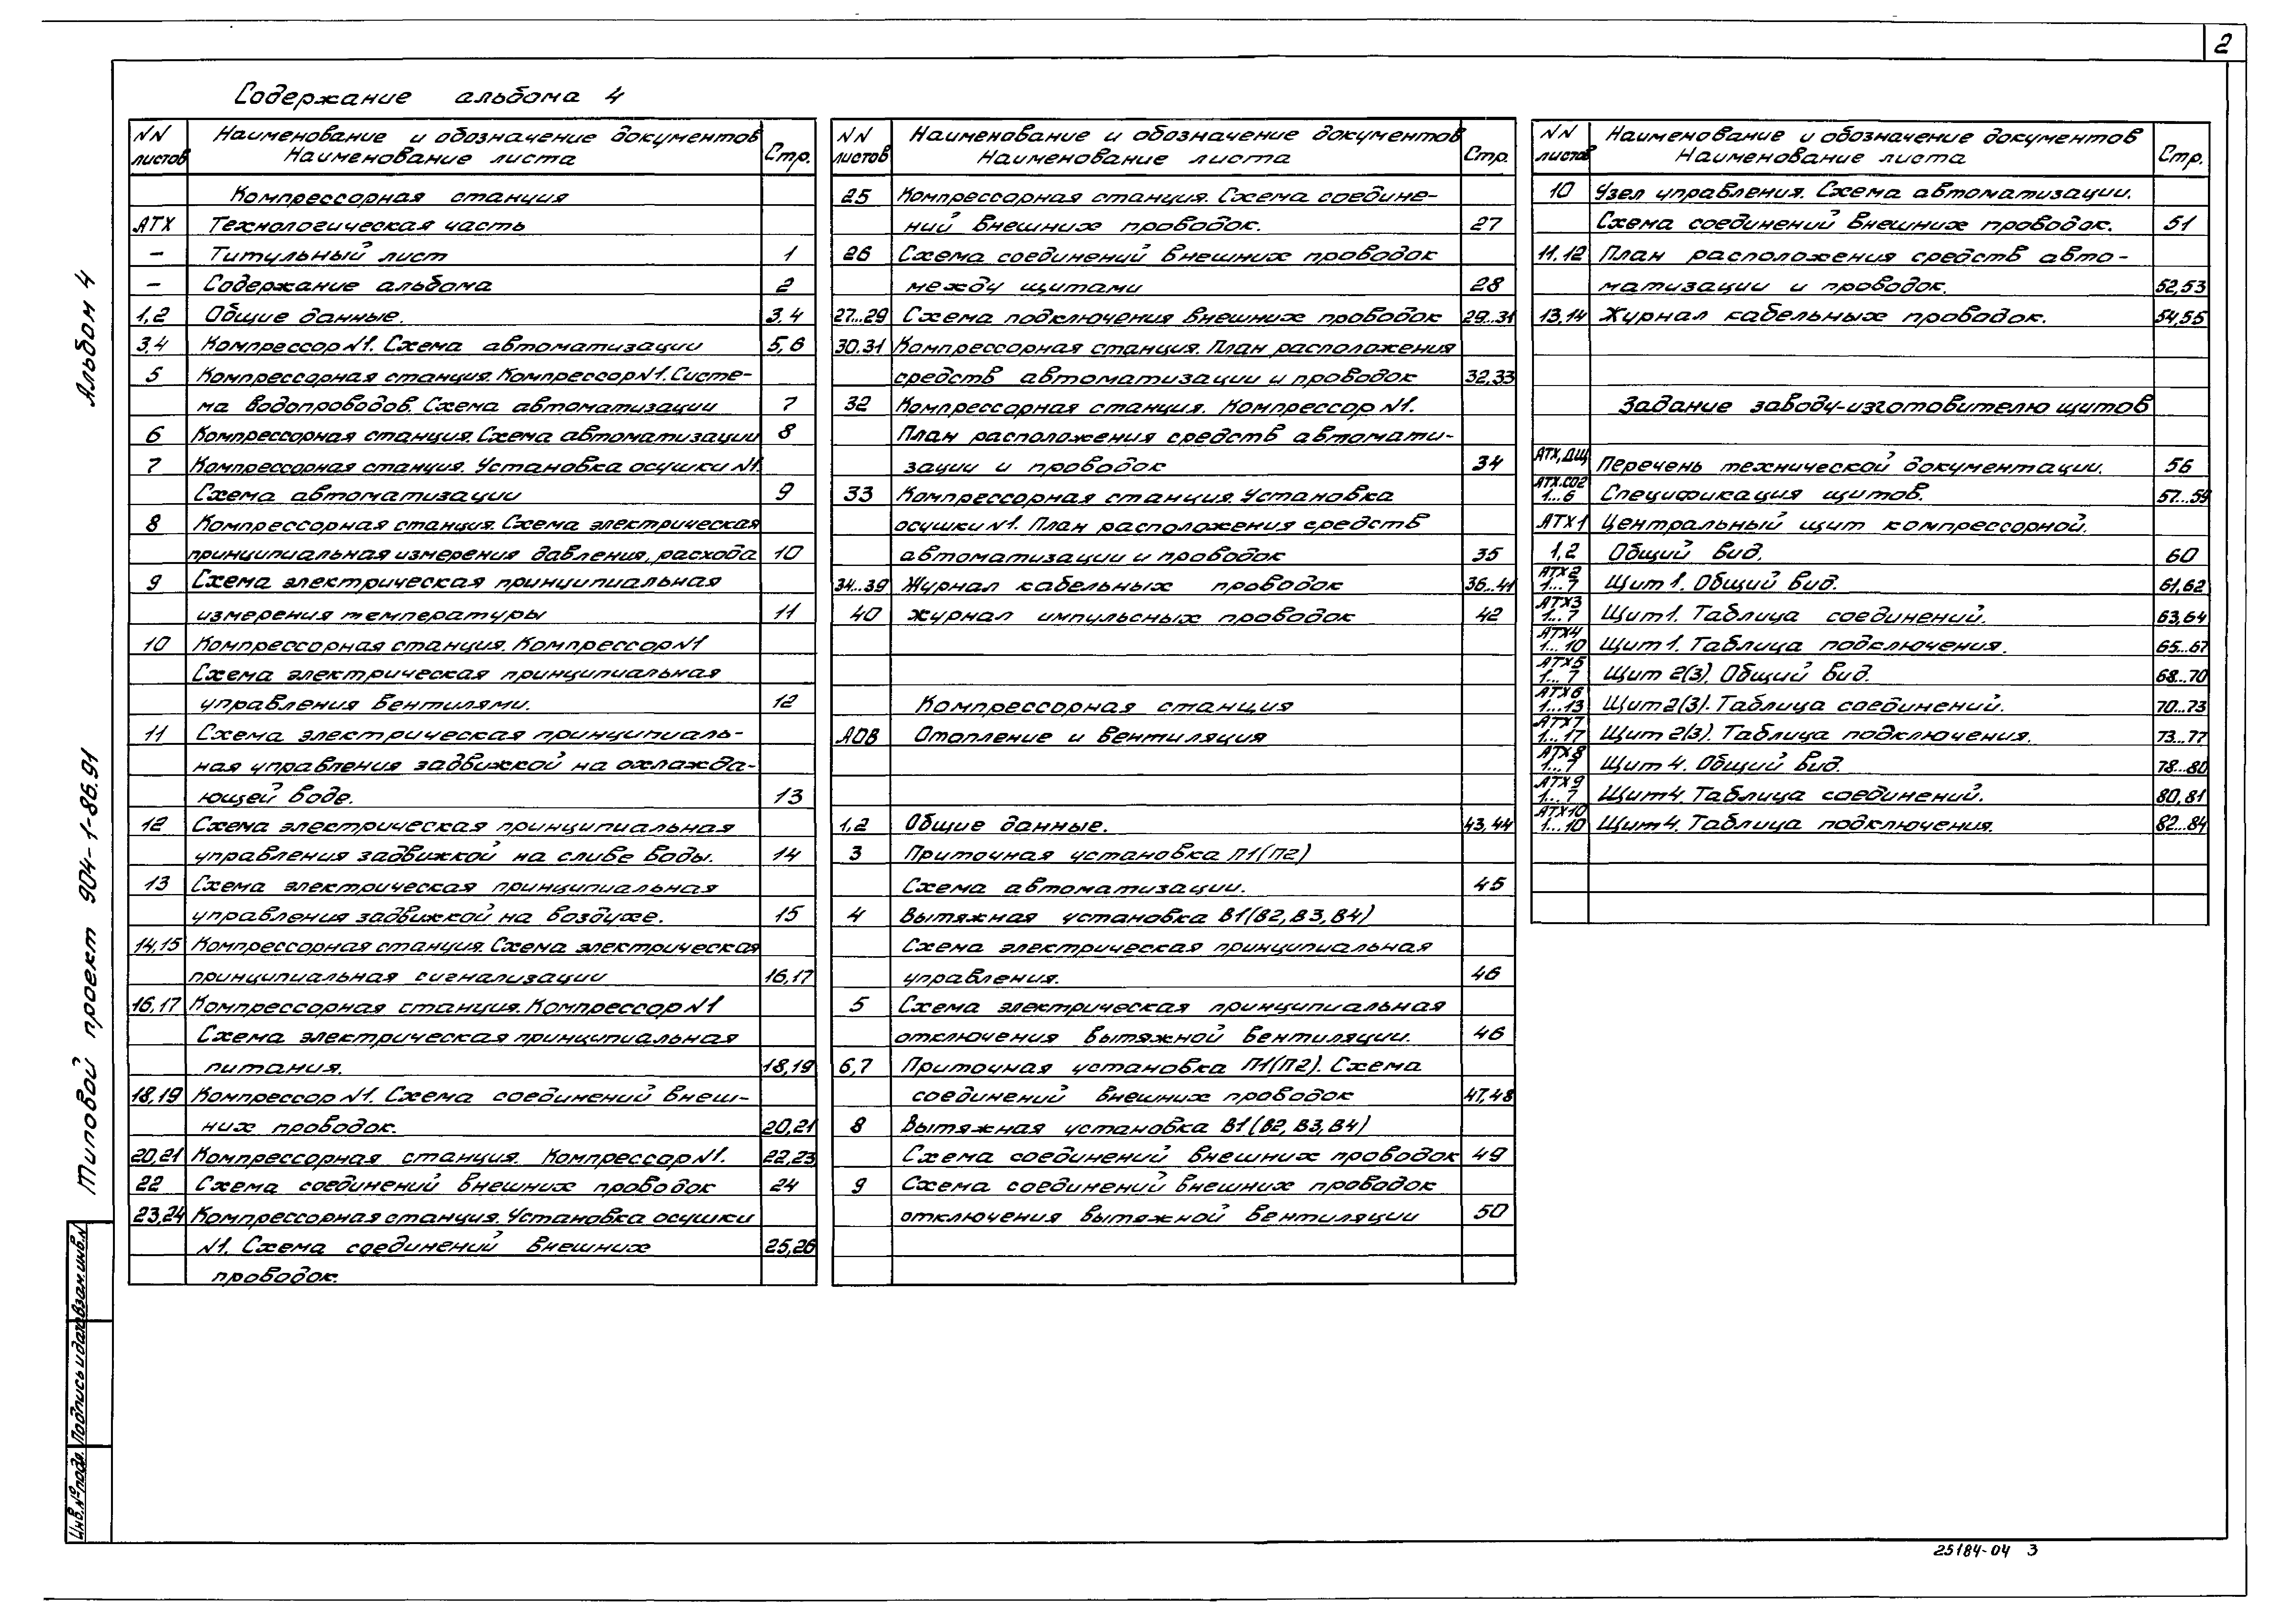 2
Содержание альбома 4
NN листов Наименование и обозначение документов Наименование листа Стр.
Компрессорная станция
АТХ Технологическая часть
– Титульный лист 1
– Содержание альбома 2
1,2 Общие данные. 3,4
3,4 Компрессор N1. Схема автоматизации 5,6
5 Компрессорная станция. Компрессор N1. Систе-
ма водопроводов. Схема автоматизации 7
6 Компрессорная станция. Схема автоматизации 8
7 Компрессорная станция. Установка осушки N1.
Схема автоматизации 9
8 Компрессорная станция. Схема электрическая
принципиальная измерения давления, расхода 10
9 Схема электрическая принципиальная
измерения температуры 11
10 Компрессорная станция. Компрессор N1
Схема электрическая принципиальная
управления вентилями. 12
11 Схема электрическая принципиаль-
ная управления задвижкой на охлажда-
ющей воде. 13
12 Схема электрическая принципиальная
управления задвижкой на сливе воды. 14
13 Схема электрическая принципиальная
управления задвижкой на воздухе. 15
14,15 Компрессорная станция. Схема электрическая
принципиальная сигнализации 16,17
16,17 Компрессорная станция. Компрессор N1
Схема электрическая принципиальная
питания. 18,19
18,19 Компрессор N1. Схема соединений внеш-
них проводок. 20,21
20,21 Компрессорная станция. Компрессор N1. 22,23
22 Схема соединений внешних проводок 24
23,24 Компрессорная станция. Установка осушки
N1. Схема соединений внешних 25,26
проводок.
NN листов Наименование и обозначение документов Наименование листа Стр.
25 Компрессорная станция. Схема соедине-
ний внешних проводок. 27
26 Схема соединений внешних проводок
между щитами 28
27...29 Схема подключения внешних проводок 29...31
30.31 Компрессорная станция. План расположения
средств автоматизации и проводок 32,33
32 Компрессорная станция. Компрессор N1.
План расположения средств автомати-
зации и проводок 34
33 Компрессорная станция. Установка
осушки N1. План расположения средств
автоматизации и проводок 35
34...39 Журнал кабельных проводок 36...41
40 Журнал импульсных проводок 42
Компрессорная станция
АОВ Отопление и вентиляция
1,2 Общие данные. 43,44
3 Приточная установка П1(П2)
Схема автоматизации. 45
4 Вытяжная установка В1(В2,В3,В4)
Схема электрическая принципиальная
управления. 46
5 Схема электрическая принципиальная
отключения вытяжной вентиляции. 46
6,7 Приточная установка П1(П2). Схема
соединений внешних проводок 47,48
8 Вытяжная установка В1(В2,В3,В4)
Схема соединений внешних проводок 49
9 Схема соединений внешних проводок
отключения вытяжной вентиляции 50
NN листов Наименование и обозначение документов Наименование листа Стр.
10 Узел управления. Схема автоматизации.
Схема соединений внешних проводок. 51
11,12 План расположения средств авто-
матизации и проводок. 52,53
13,14 Журнал кабельных проводок. 54,55
Задание заводу-изготовителю щитов
АТХ,ДЩ Перечень технической документации. 56
АТХ.СО2 1...6 Спецификация щитов. 57...59
АТХ1 Центральный щит компрессорной.
1,2 Общий вид. 60
АТХ2 1...7 Щит 1. Общий вид. 61,62
АТХ3 1...7 Щит1. Таблица соединений. 63,64
АТХ4 1...10 Щит 1. Таблица подключения. 65...67
АТХ5 1...7 Щит 2(3). Общий вид. 68...70
АТХ6 1...13 Щит2(3). Таблица соединений. 70...73
АТХ7 1...17 Щит 2(3). Таблица подключения. 73...77
АТХ8 1...7 Щит 4. Общий вид. 78...80
АТХ9 1...7 Щит4. Таблица соединений. 80,81
АТХ10 1...10 Щит4. Таблица подключения. 82...84
Альбом 4
Типовой проект 904-1-86.91
Взам.инв.N
Подпись и дата
Инв.№ подл.
25184-04 3